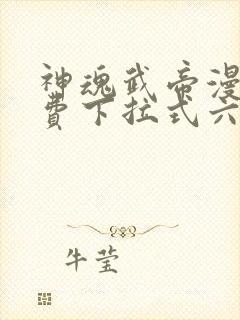 神魂武帝漫
费下拉式六
牛莹